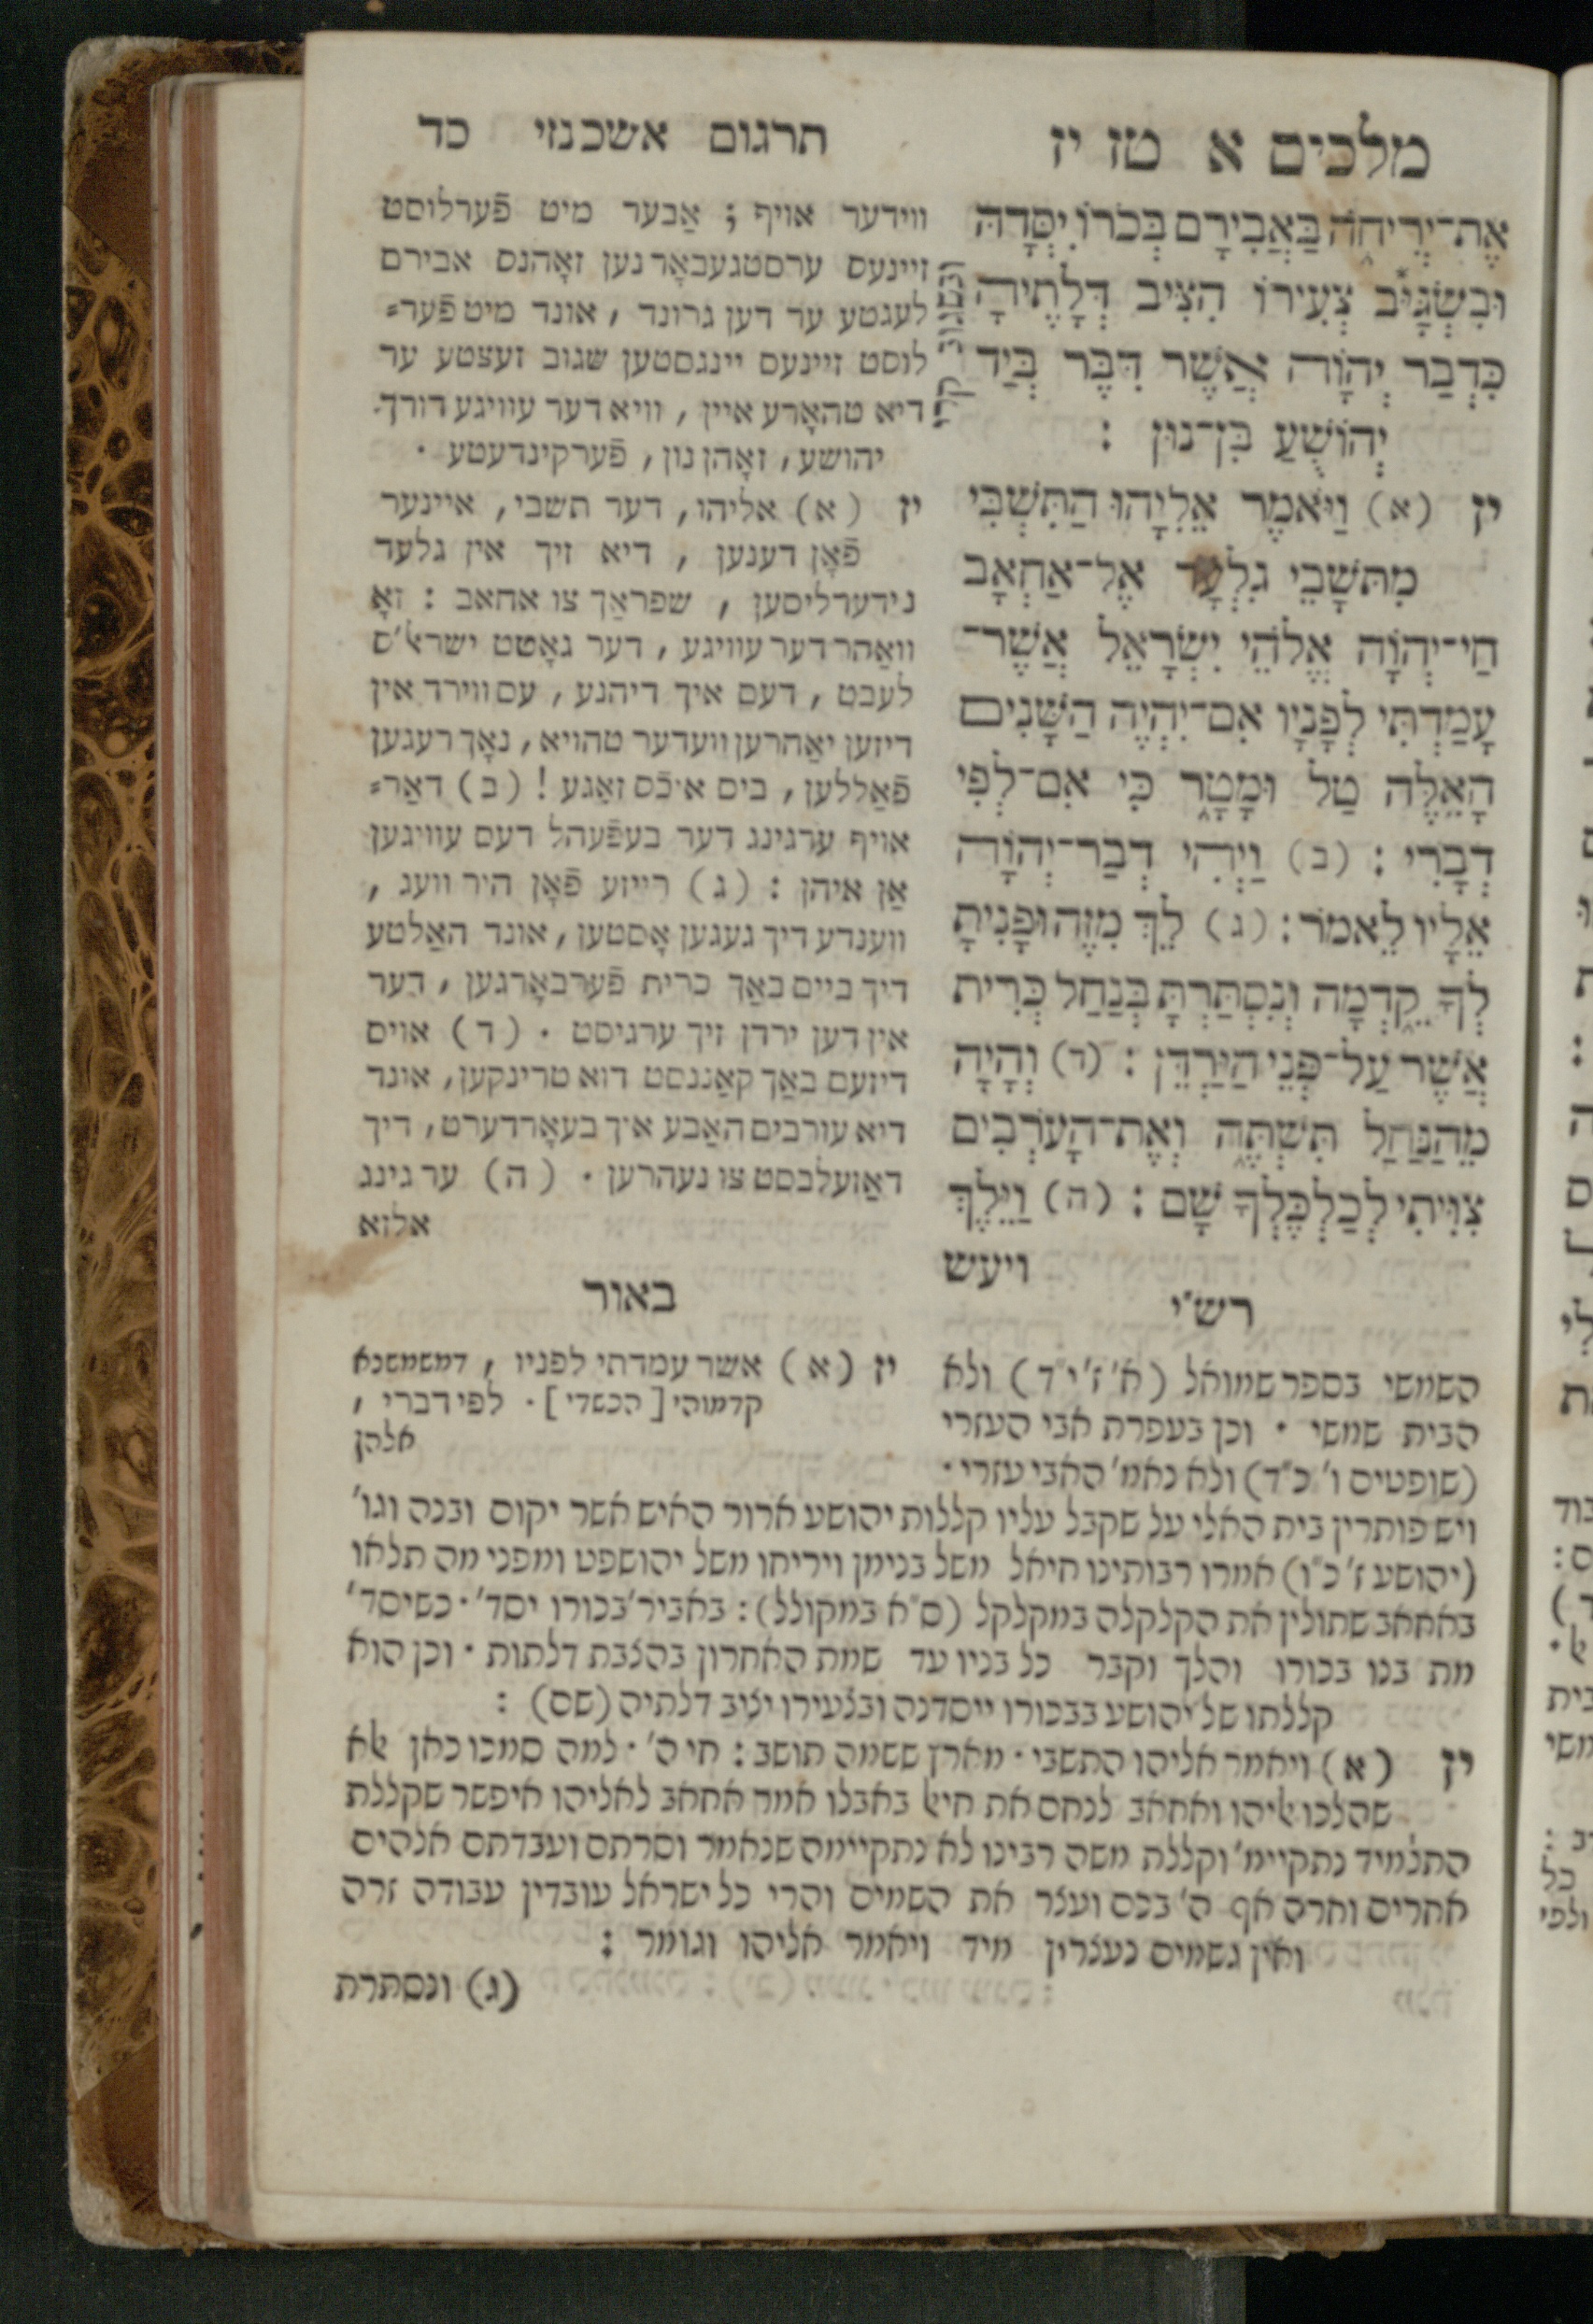 מלכים א טז יז
אֶת־יְרִיחֹה בַּאֲבִירָם בְּכֹרוֹ יִסְּדָהּ
וּבִשְׂגִיב צְעִירוֹ הִצִּיב דְּלָתֶיהָ
כִּדְבַר יְהוָֹה אֲשֶׁר דִּבֶּר בְּיַד
יְהוֹשֻׁעַ בִּן־נוּן :
ובשגוב קרי
יז (א) וַיֹּאמֶר אֵלִיָּהוּ הַתִּשְׁבִּי
מִתֹּשָׁבֵי גִלְעָד אֶל־אַחְאָב
חַי־יְהוָֹה אֱלֹהֵי יִשְׂרָאֵל אֲשֶׁר־
עָמַדְתִּי לְפָנָיו אִם־יִהְיֶה הַשָּׁנִים
הָאֵלֶּה טַל וּמָטָר כִּי אִם־לְפִי
דְבָרִי : (ב) וַיְהִי דְבַר־יְהוָֹה
אֵלָיו לֵאמֹר : (ג) לֵךְ מִזֶּה וּפָנִיתָ
לְּךָ קֵדְמָה וְנִסְתַּרְתָּ בְּנַחַל כְּרִית
אֲשֶׁר עַל־פְּנֵי הַיַּרְדֵּן : (ד) וְהָיָה
מֵהַנַּחַל תִּשְׁתֶּה וְאֶת־הָעֹרְבִים
צִוִּיתִי לְכַלְכֶּלְךָ שָׁם : (ה) וַיֵּלֶךְ
ויעש
תרגום אשכנזי כד
ווידער אויף ; אַבער מיט פֿערלוסט
זיינעס ערסטגעבאָרנען זאָהנס אבירם
לעגטע ער דען גרונד , אונד מיט פֿער=
לוסט זיינעס יינגסטען שגוב זעצטע ער
דיא טהאָרע איין , וויא דער עוויגע דורך
יהושע , זאָהן נון , פֿערקינדעטע .
יז (א) אליהו , דער תשבי , איינער
פֿאָן דענען , דיא זיך אין גלעד
נידערליסען , שפראַך צו אחאב : זאָ
וואַהר דער עוויגע , דער גאָטט ישראל'ס
לעבט , דעם איך דיהנע , עס ווירד אין
דיזען יאַהרען וועדער טהויא , נאָך רעגען
פֿאַללען , ביס איכֿס זאַגע ! (ב) דאַר=
אויף ערגינג דער בעפֿעהל דעס עוויגען
אַן איהן : (ג) רייזע פֿאָן היר וועג ,
ווענדע דיך געגען אָסטען , אונד האַלטע
דיך ביים באַך כרית פֿערבאָרגען , דער
אין דען ירדן זיך ערגיסט . (ד) אויס
דיזעם באַך קאַננסט דוא טרינקען , אונד
דיא עורבים האַבע איך בעאָרדערט , דיך
דאַזעלבסט צו נעהרען . (ה) ער גינג
אלזא
רש"י
השמשי בספר שמואל (א' ז' י"ד) ולא
הבית שמשי . וכן בעפרת אבי העזרי
(שופטים ו' כ"ד) ולא נאמ' האבי עזרי .
באור
יז (א) אשר עמדתי לפניו , דמשמשנא
קדמוהי [הכשדי] . לפי דברי ,
אלהן
ויש פותרין בית האלי על שקבל עליו קללות יהושע ארור האיש אשר יקום ובנה וגו'
(יהושע ז' כ"ו) אמרו רבותינו חיאל משל בנימן ויריחו משל יהושפט ומפני מה תלאו
באחאב שתולין את הקלקלה במקלקל (ס"א במקולל) : באביר' בכורו יסד' . כשיסד'
מת בנו בכורו והלך וקבר כל בניו עד שמת האחרון בהצבת דלתות . וכן הוא
קללתו של יהושע בבכורו ייסדנה ובצעירו יציב דלתיה (שם) :
יז (א) ויאמר אליהו התשבי . מארץ ששמה תושב : חי ה' . למה סמכו כאן אלא
שהלכו אליהו ואחאב לנחם את חיאל באבלו אמר אחאב לאליהו איפשר שקללת
התלמיד נתקיימ' וקללת משה רבינו לא נתקיימה שנאמר וסרתם ועבדתם אלהים
אחרים וחרה אף ה' בכם ועצר את השמים והרי כל ישראל עובדין עבודה זרה
ואין גשמים נעצרין מיד ויאמר אליהו וגומר :
(ג) ונסתרת